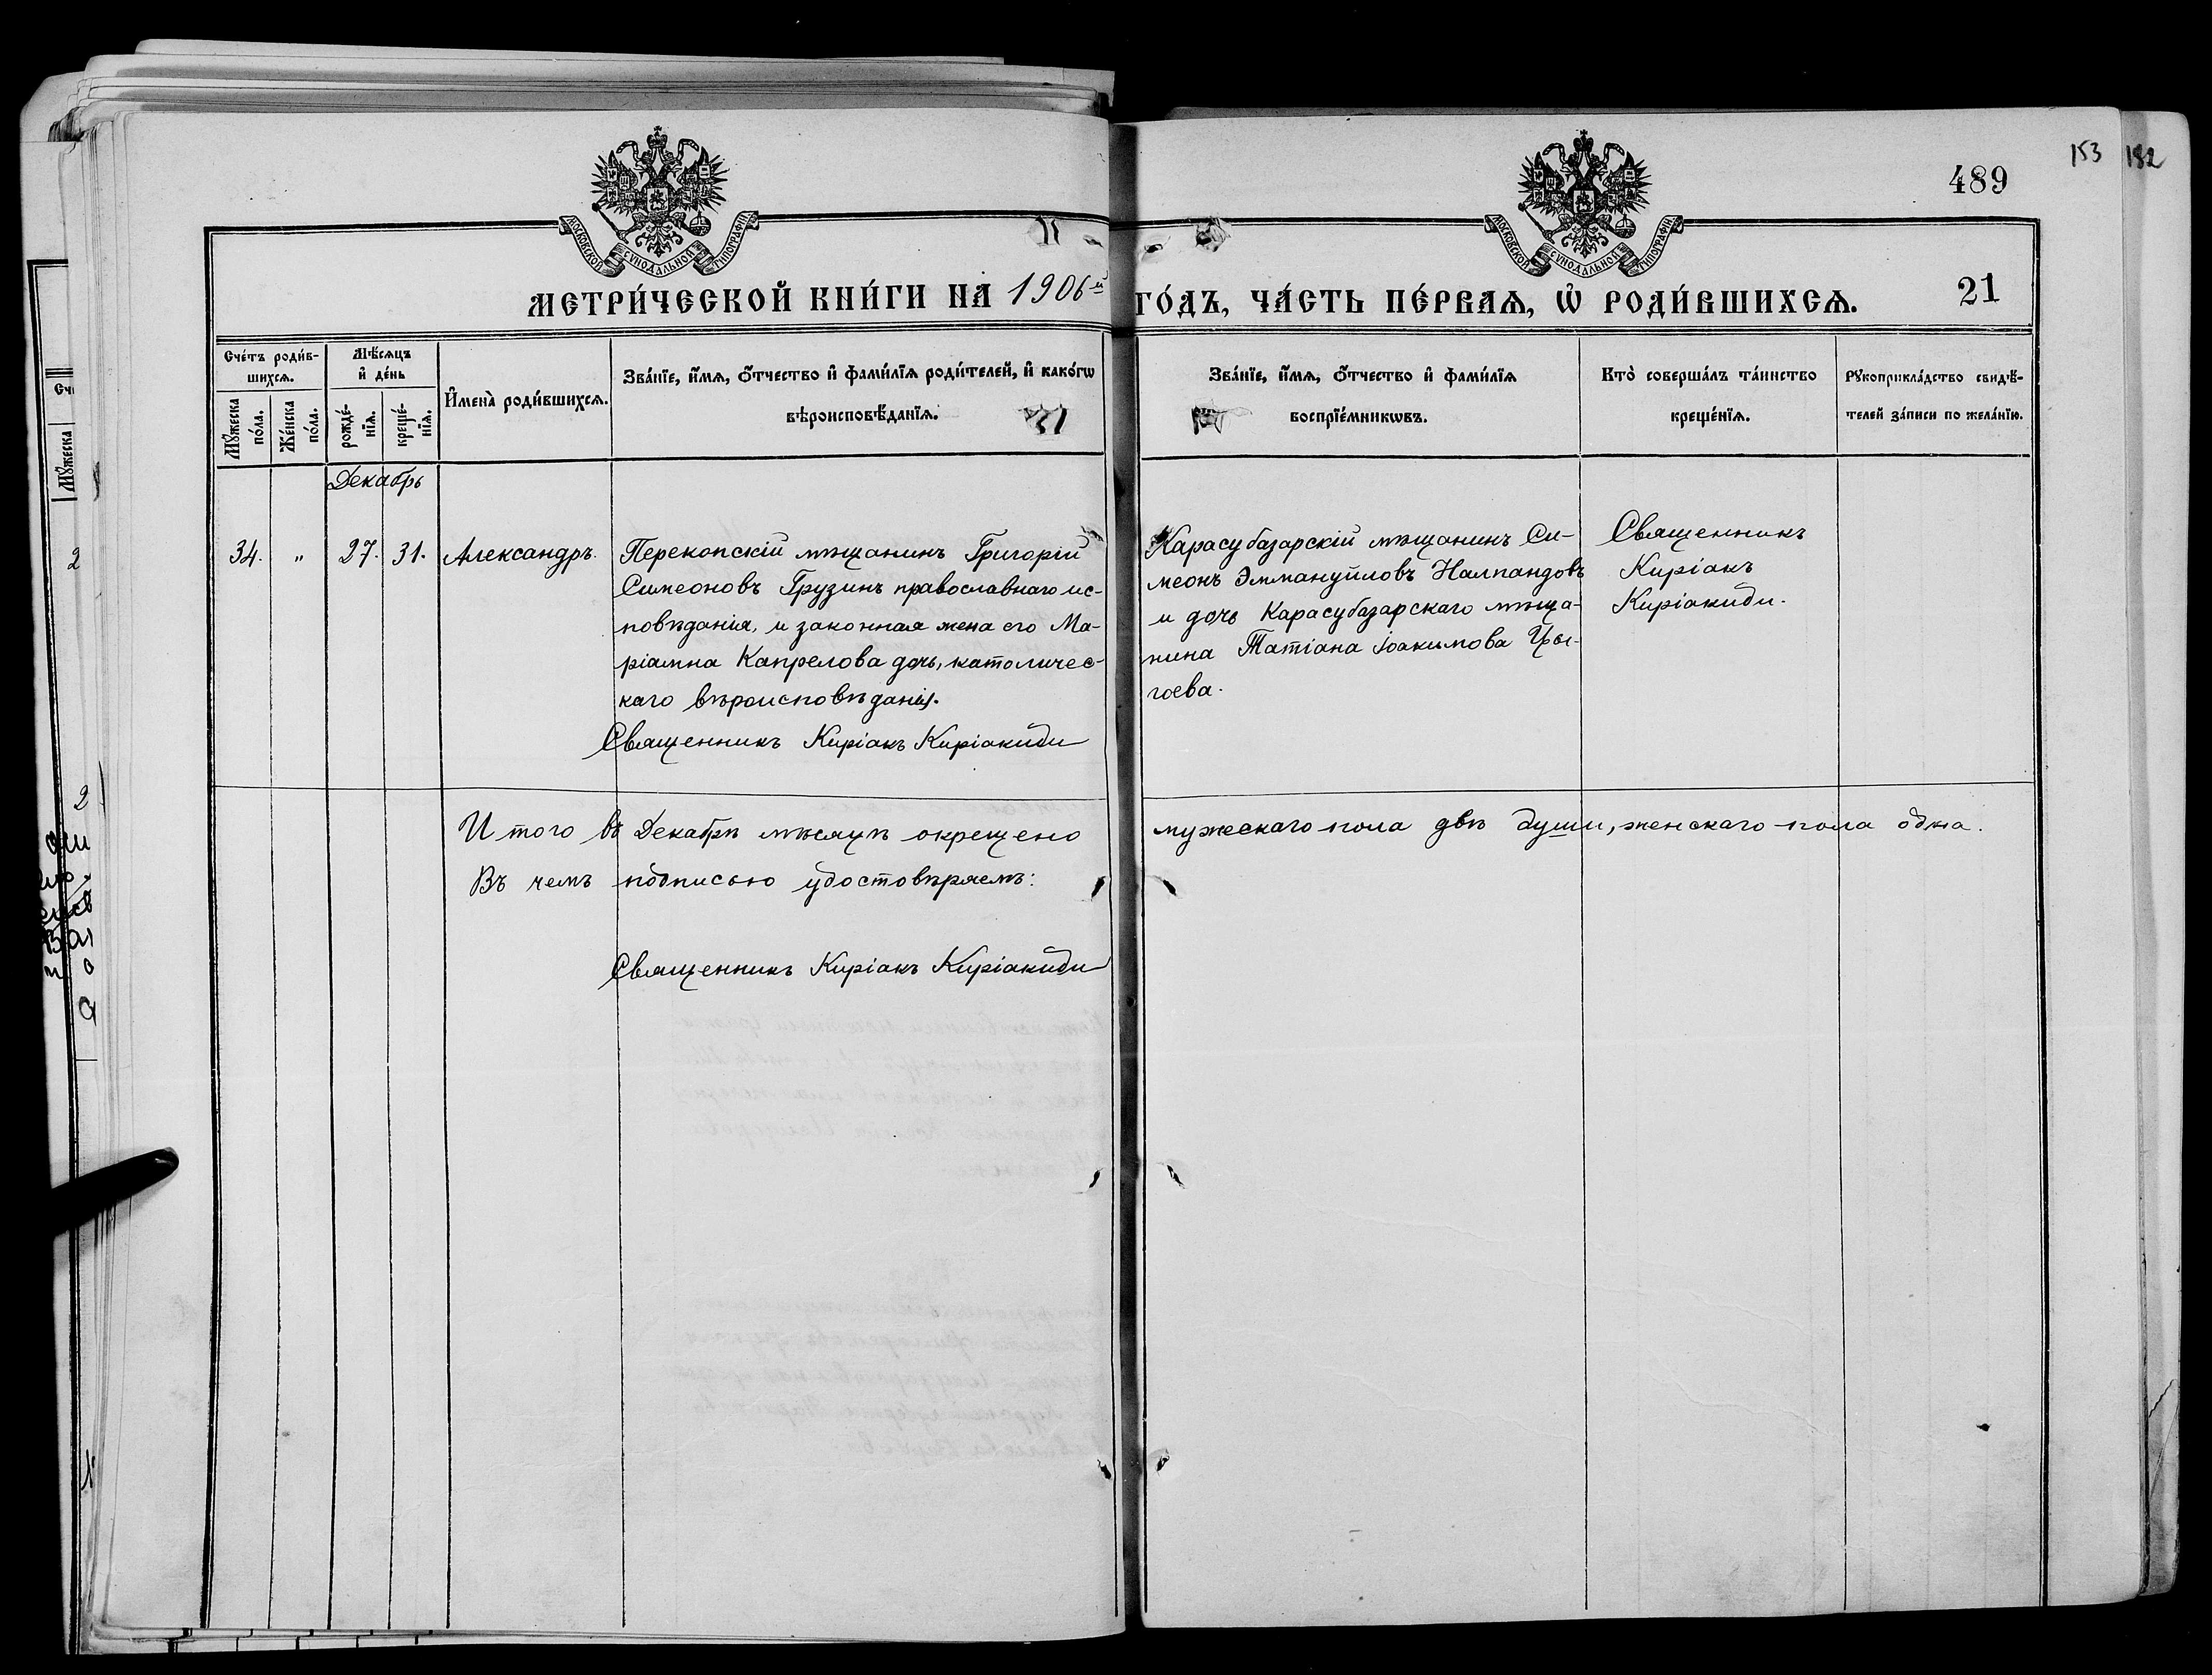 153 182
489
МОСКОВСКОЙ СѴНОДАЛЬНОЙ ТИПОГРАФІИ
МОСКОВСКОЙ СѴНОДАЛЬНОЙ ТИПОГРАФІИ
МЕТРИ́ЧЕСКОЙ КНИ́ГИ НА 1906-й ГО́ДЪ, ЧА́СТЬ ПЕ́РВАЯ, Ѡ҆ РОДИ́ВШИХСѦ.
21
Сче́тъ роди́в-
шихсѧ.
Мꙋ́жеска
по́ла.
Же́нска
по́ла.
Мѣ́сѧцъ
и҆ де́нь
рожде́-
нїѧ.
креще́-
нїѧ.
И҆мена̀ роди́вшихсѧ.
Зва́нїе, и҆́мѧ, ѻ҆́тчество и҆ фами́лїѧ роди́телей, и҆ како́гѡ
вѣроисповѣ́данїѧ.
Зва́нїе, и҆́мѧ, ѻ҆́тчество и҆ фами́лїѧ
воспрїе́мникѡвъ.
Кто̀ соверша́лъ та́инство
креще́нїѧ.
Рꙋкоприкла́дство свидѣ́-
телей за́писи по жела́нїю.
Декабрь
34. " 27. 31. Александръ.
Перекопскій мѣщанинъ Григорій
Симеоновъ Грузинъ православнаго ис-
повѣданія, и законная жена его Ма-
ріамна Капрелова дочь, католичес-
каго вѣроисповѣданія.
Священникъ Киріакъ Киріакиди
Карасубазарскій мѣщанинъ Си-
меонъ Эммануиловъ Налпандовъ
и дочь Карасубазарскаго мѣща-
нина Татіана Іоакимова Цы-
гоева.
Священникъ
Киріакъ
Киріакиди.
Итого въ Декабрѣ мѣсяцѣ окрещено мужескаго пола двѣ души, женскаго пола одна.
Въ чемъ подписью удостовѣряемъ:
Священникъ Киріакъ Киріакиди